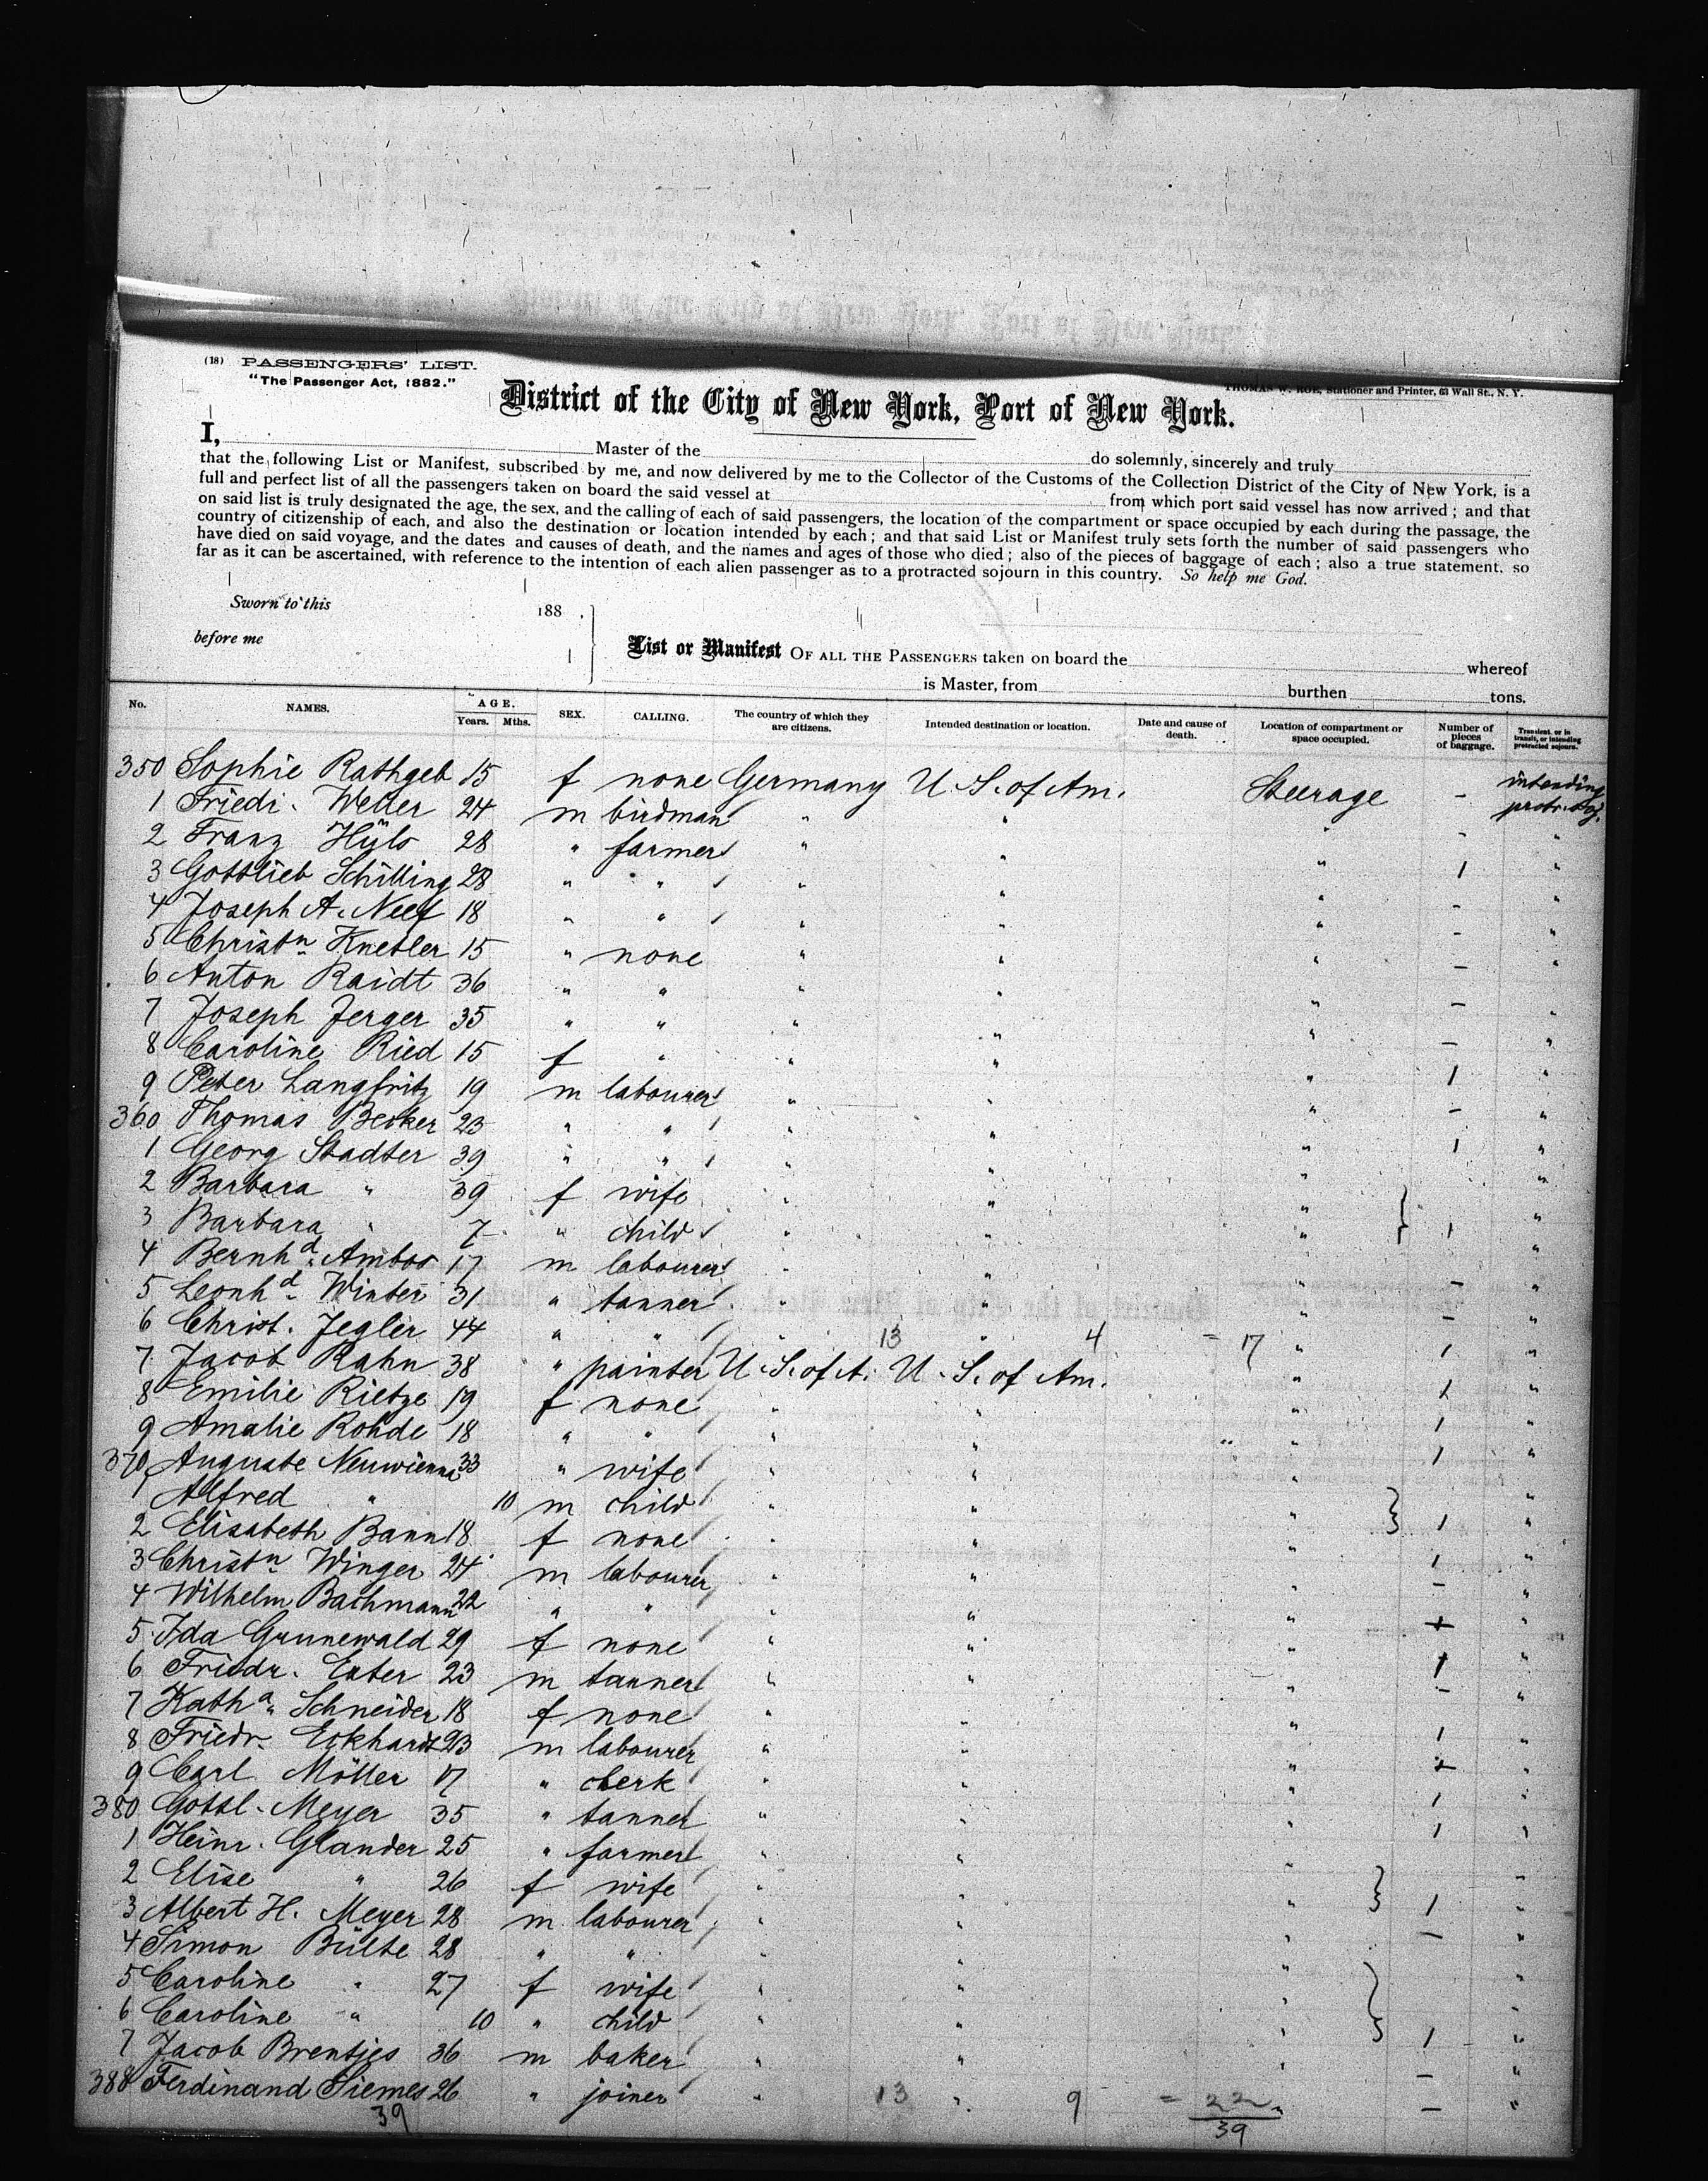 (18) PASSENGERS' LIST.
"The Passenger Act, 1882."
THOMAS W. ROE, Stationer and Printer, 63 Wall St., N. Y.
District of the City of New York, Port of New York.
I, Master of the do solemnly, sincerely and truly
that the following List or Manifest, subscribed by me, and now delivered by me to the Collector of the Customs of the Collection District of the City of New York, is a
full and perfect list of all the passengers taken on board the said vessel at from which port said vessel has now arrived; and that
on said list is truly designated the age, the sex, and the calling of each of said passengers, the location of the compartment or space occupied by each during the passage, the
country of citizenship of each, and also the destination or location intended by each; and that said List or Manifest truly sets forth the number of said passengers who
have died on said voyage, and the dates and causes of death, and the names and ages of those who died; also of the pieces of baggage of each; also a true statement, so
far as it can be ascertained, with reference to the intention of each alien passenger as to a protracted sojourn in this country. So help me God.
Sworn to this 188
before me
List or Manifest OF ALL THE PASSENGERS taken on board the whereof
is Master, from burthen tons.
No. NAMES. AGE. Years. Mths. SEX. CALLING. The country of which they are citizens. Intended destination or location. Date and cause of death. Location of compartment or space occupied. Number of pieces of baggage. Transient, or in transit, or intending protracted sojourn.
350 Sophie Rathgeb 15 f none Germany U. S. of Am. Steerage - intending
1 Friedr. Weller 24 m birdman " " " - protr. soj.
2 Franz Hüls 28 " farmer " " " - "
3 Gottlieb Schilling 28 " " " " " 1 "
4 Joseph A. Neef 18 " " " " " - "
5 Christn Knebler 15 " none " " " - "
6 Anton Raidt 36 " " " " " - "
7 Joseph Jerger 35 " " " " " - "
8 Caroline Ried 15 f " " " " - "
9 Peter Langfritz 19 m labourer " " " 1 "
360 Thomas Becker 23 " " " " " - "
1 Georg Stadter 39 " " " " " 1 "
2 Barbara " 39 f wife " " " "
3 Barbara " 7 " child " " " 1 "
4 Bernhd Ambos 17 m labourer " " " - "
5 Leonhd Winter 31 " tanner " " " - "
6 Christ. Jegler 44 " " " 13 " 4 = 17 " 1 "
7 Jacob Rahn 38 " painter U. S. of A. U. S. of Am. " 1 "
8 Emilie Rietze 19 f none " " " 1 "
9 Amalie Rohde 18 " " " " " 1 "
370 Auguste Neuwienna 33 " wife " " " "
1 Alfred " 10 m child " " " 1 "
2 Elisabeth Bann 18 f none " " " 1 "
3 Christn Winger 24 m labourer " " " - "
4 Wilhelm Bachmann 22 " " " " " + "
5 Ida Grunewald 29 f none " " " 1 "
6 Friedr. Exter 23 m tanner " " " - "
7 Katha Schneider 18 f none " " " 1 "
8 Friedr. Eckhardt 23 m labourer " " " + "
9 Carl Möller 17 " clerk " " " 1 "
380 Gottl. Meyer 35 " tanner " " " 1 "
1 Heinr. Glander 25 " farmer " " " "
2 Elise " 26 f wife " " " 1 "
3 Albert H. Meyer 28 m labourer " " " - "
4 Simon Bülte 28 " " " " " "
5 Caroline " 27 f wife " " " "
6 Caroline " 10 " child " " " 1 "
7 Jacob Brentjes 36 m baker " " " - "
388 Ferdinand Siemes 26 " joiner " 13 " 9 = 22 - "
39 39